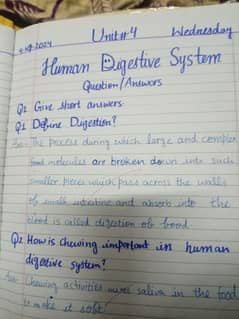 2024 Unit#4 Wednesday
Human Digestive System
Question/Answers
Q1 Give short answers.
Q1 Define Digestion?
The process during which large and complex
food molecules are broken down into such
smaller pieces which pass across the walls
of small intestine and absorb into the
blood is called digestion of food
Q2 How is chewing important in human
digestive system?
Chewing activities mixes saliva in the food
to make it soft